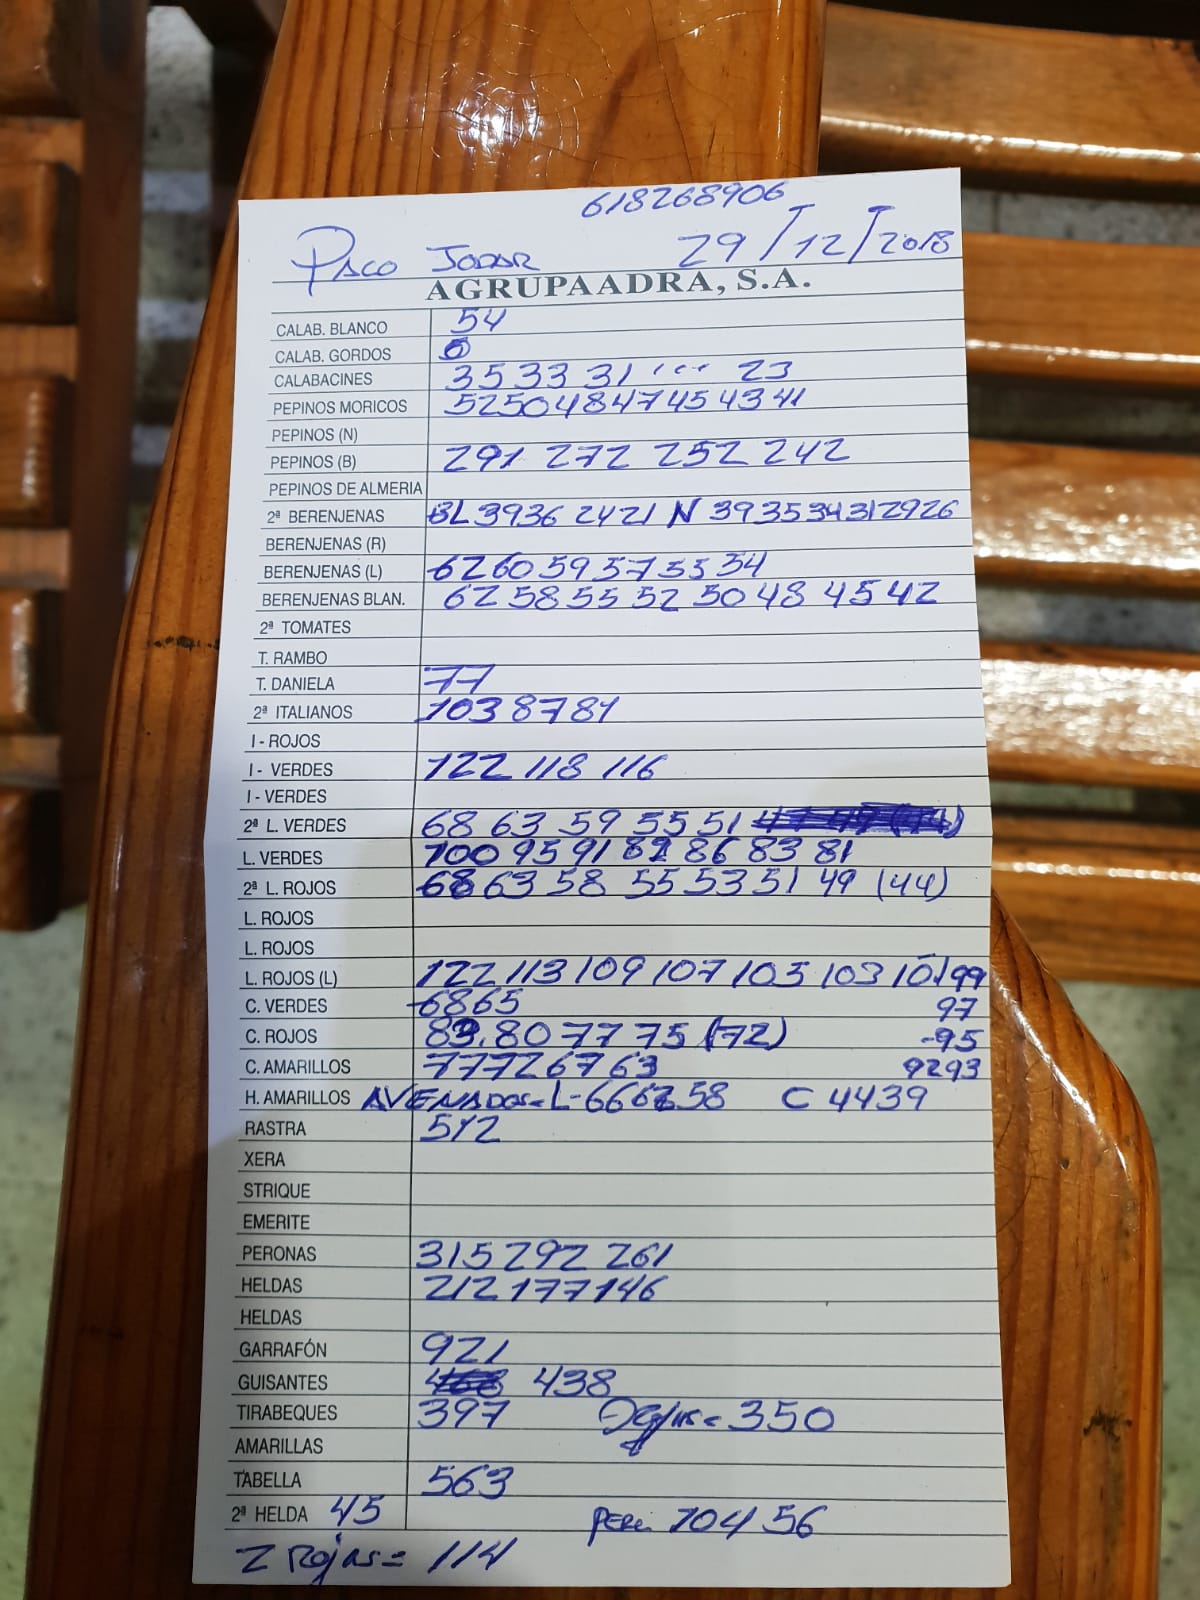 618268906
PACO JODAR 29/12/2018
AGRUPAADRA, S.A.
CALAB. BLANCO 54
CALAB. GORDOS
CALABACINES 35 33 31 ... 23
PEPINOS MORICOS 52 50 48 47 45 43 41
PEPINOS (N)
PEPINOS (B) 291 272 252 242
PEPINOS DE ALMERIA
2ª BERENJENAS BL 39 36 24 21 N 39 35 34 31 29 26
BERENJENAS (R)
BERENJENAS (L) 62 60 59 57 55 54
BERENJENAS BLAN. 62 58 55 52 50 48 45 42
2ª TOMATES
T. RAMBO
T. DANIELA 77
2ª ITALIANOS 103 87 81
I - ROJOS
I - VERDES 122 118 116
I - VERDES
2ª L. VERDES 68 63 59 55 51
L. VERDES 100 95 91 86 83 81
2ª L. ROJOS 68 63 58 55 53 51 49 (44)
L. ROJOS
L. ROJOS
L. ROJOS (L) 122 113 109 107 105 103 101 99
C. VERDES 68 65 97
C. ROJOS 80 77 75 (72) -95
C. AMARILLOS 77 72 67 63 92 93
H. AMARILLOS AVENADOS = L- 66 58 C 44 39
RASTRA 512
XERA
STRIQUE
EMERITE
PERONAS 315 292 261
HELDAS 212 177 146
HELDAS
GARRAFÓN 921
GUISANTES 438
TIRABEQUES 397 = 350
AMARILLAS
TABELLA 563
2ª HELDA 45 PERE 104 56
2 ROJAS = 114